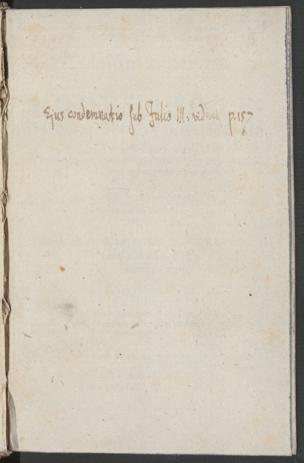 Ejus condemnatio sub Julio III. p. 157